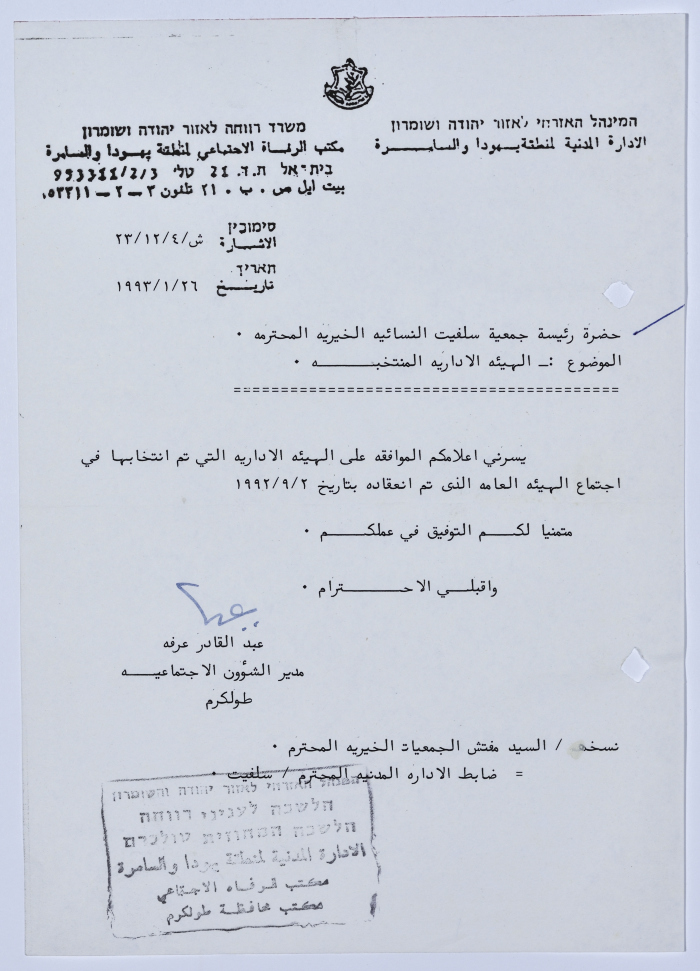 המינהל האזרחי לאזור יהודה ושומרון
الادارة المدنية لمنطقة يهودا والسامـــــرة
משרד רווחה לאזור יהודה ושומרון
مكتب الرفاة الاجتماعي لمنطقة يهودا والسامرة
בית־אל ת.ד. 21 טלי 993311/2/3
بيت ايل ص . ب . ٢١ تلفون ٣ – ٢ – ٥٣٣١١.
סימוכין
الاشـــارة ش/٢٣/١٢/٤
תאריך
تاريـــخ ١٩٩٣/١/٢٦
حضرة رئيسة جمعية سلفيت النسائيه الخيريه المحترمه .
الموضوع :ـ الهيئه الاداريه المنتخبــــــــه .
=========================================
يسرني اعلامكم الموافقه على الهيئه الاداريه التي تم انتخابها في
اجتماع الهيئه العامه الذى تم انعقاده بتاريخ ١٩٩٢/٩/٢
متمنيا لكــــم التوفيق في عملكــــــم .
واقبلـــي الاحــــــــترام .
عبد القادر عرفه
مدير الشؤون الاجتماعيـــــه
طولكرم
نسخه / السيد مفتش الجمعيات الخيريه المحترم .
= ضابط الاداره المدنيه المحترم / سلفيت .
המנהל האזרחי לאזור יהודה והשומרון
הלשכה לעניני רווחה
הלשכה המחוזית טולכרם
الادارة المدنية لمنطقة يهودا والسامرة
مكتب الاجتماعي
مكتب محافظة طولكرم